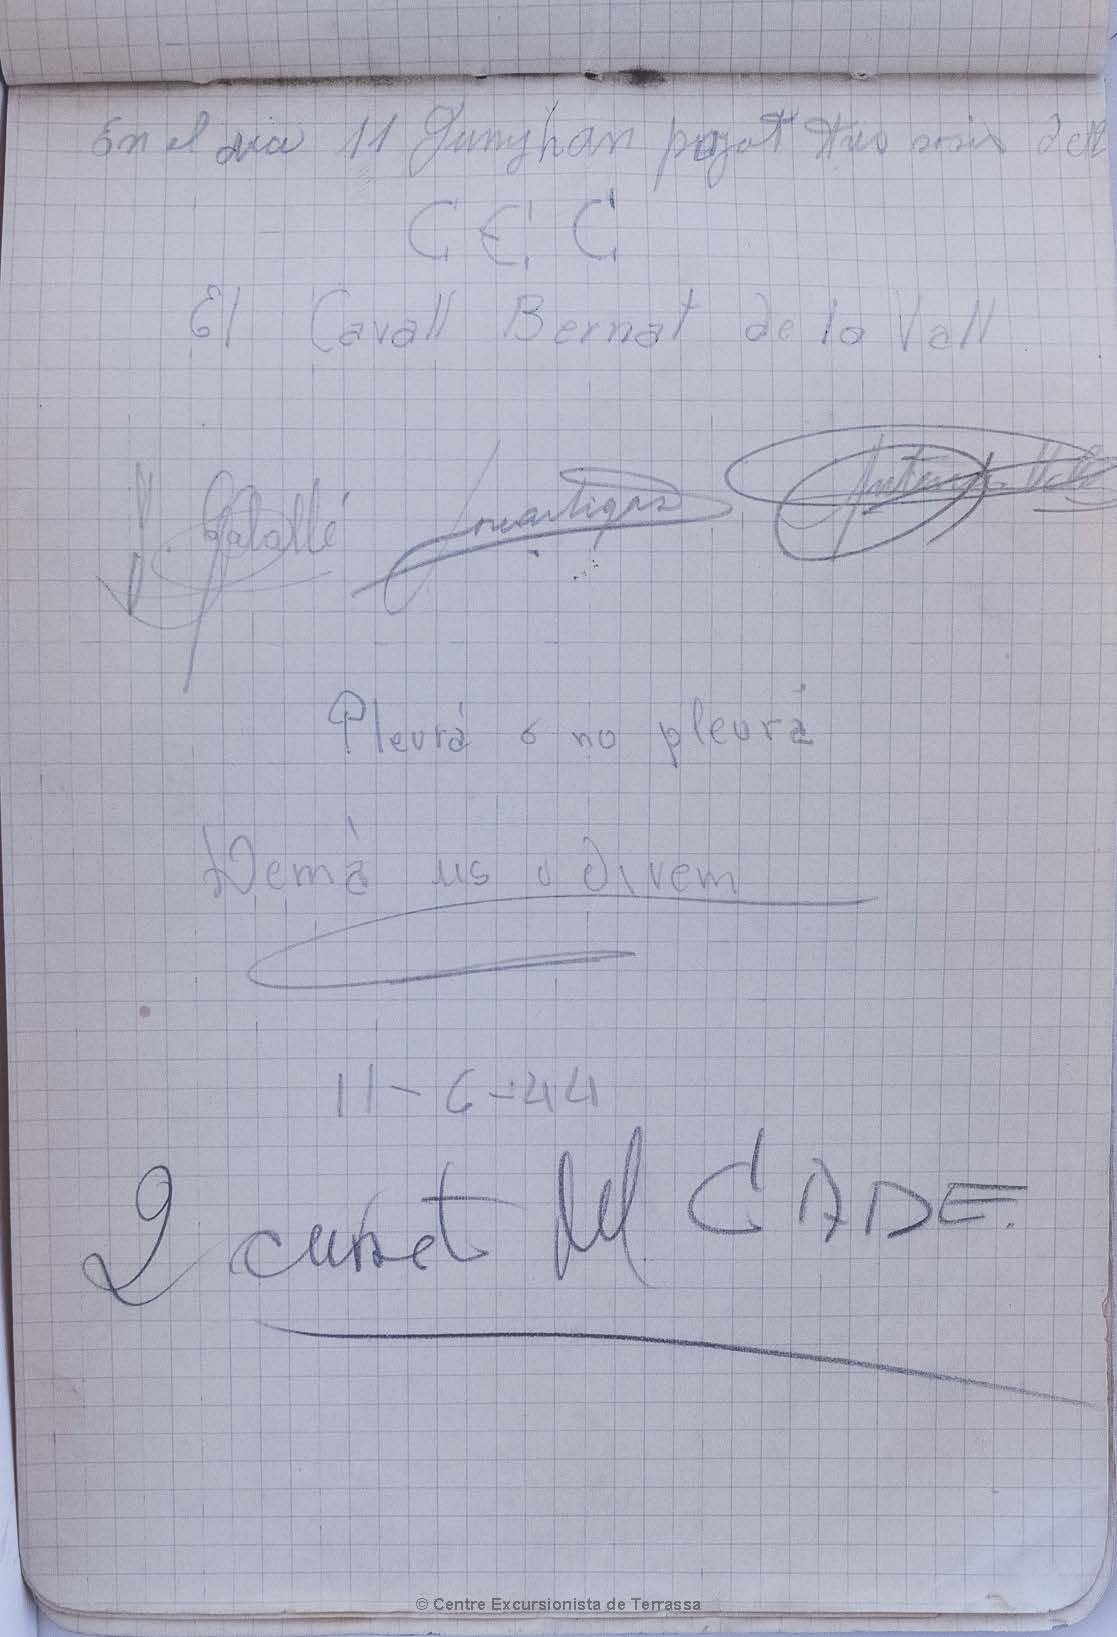 En el dia 11 Juny han pujat tres socis del
C. E. C.
El Cavall Bernat de la Vall
J. Artigas
Pleurá o no pleurá
Demà us o direm
11-6-44
2 curset del CADE.
© Centre Excursionista de Terrassa